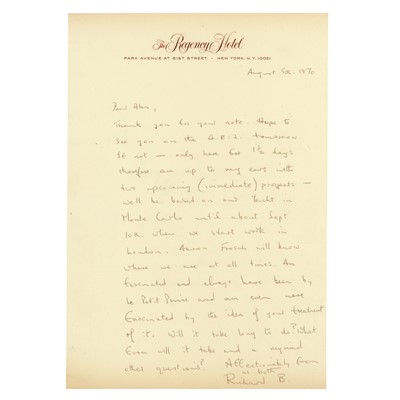 The Regency Hotel
PARK AVENUE AT 61ST STREET · NEW YORK, N.Y. 10021
August 5th. 1970
Dear Alan,
Thank you for your note. Hope to
see you on the Q.E.2. tomorrow.
If not — only here for 1½ days
therefore am up to my ears with
two upcoming (immediate) projects —
we'll be based on our Yacht in
Monte Carlo until about Sept
10th when we start work in
London. Aaron Frosch will know
where we are at all times. Am
fascinated and always have been by
Le Petit Prince and am even more
fascinated by the idea of your treatment
of it. Will it take long to do? What
form will it take and a myriad
other questions? Affectionately from
us both
Richard B.